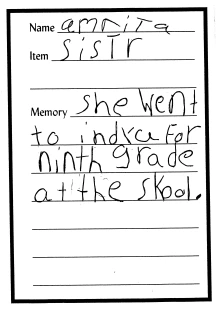 Name amrita
Item sistr
Memory she went
to indya for
ninth grade
at the skool.